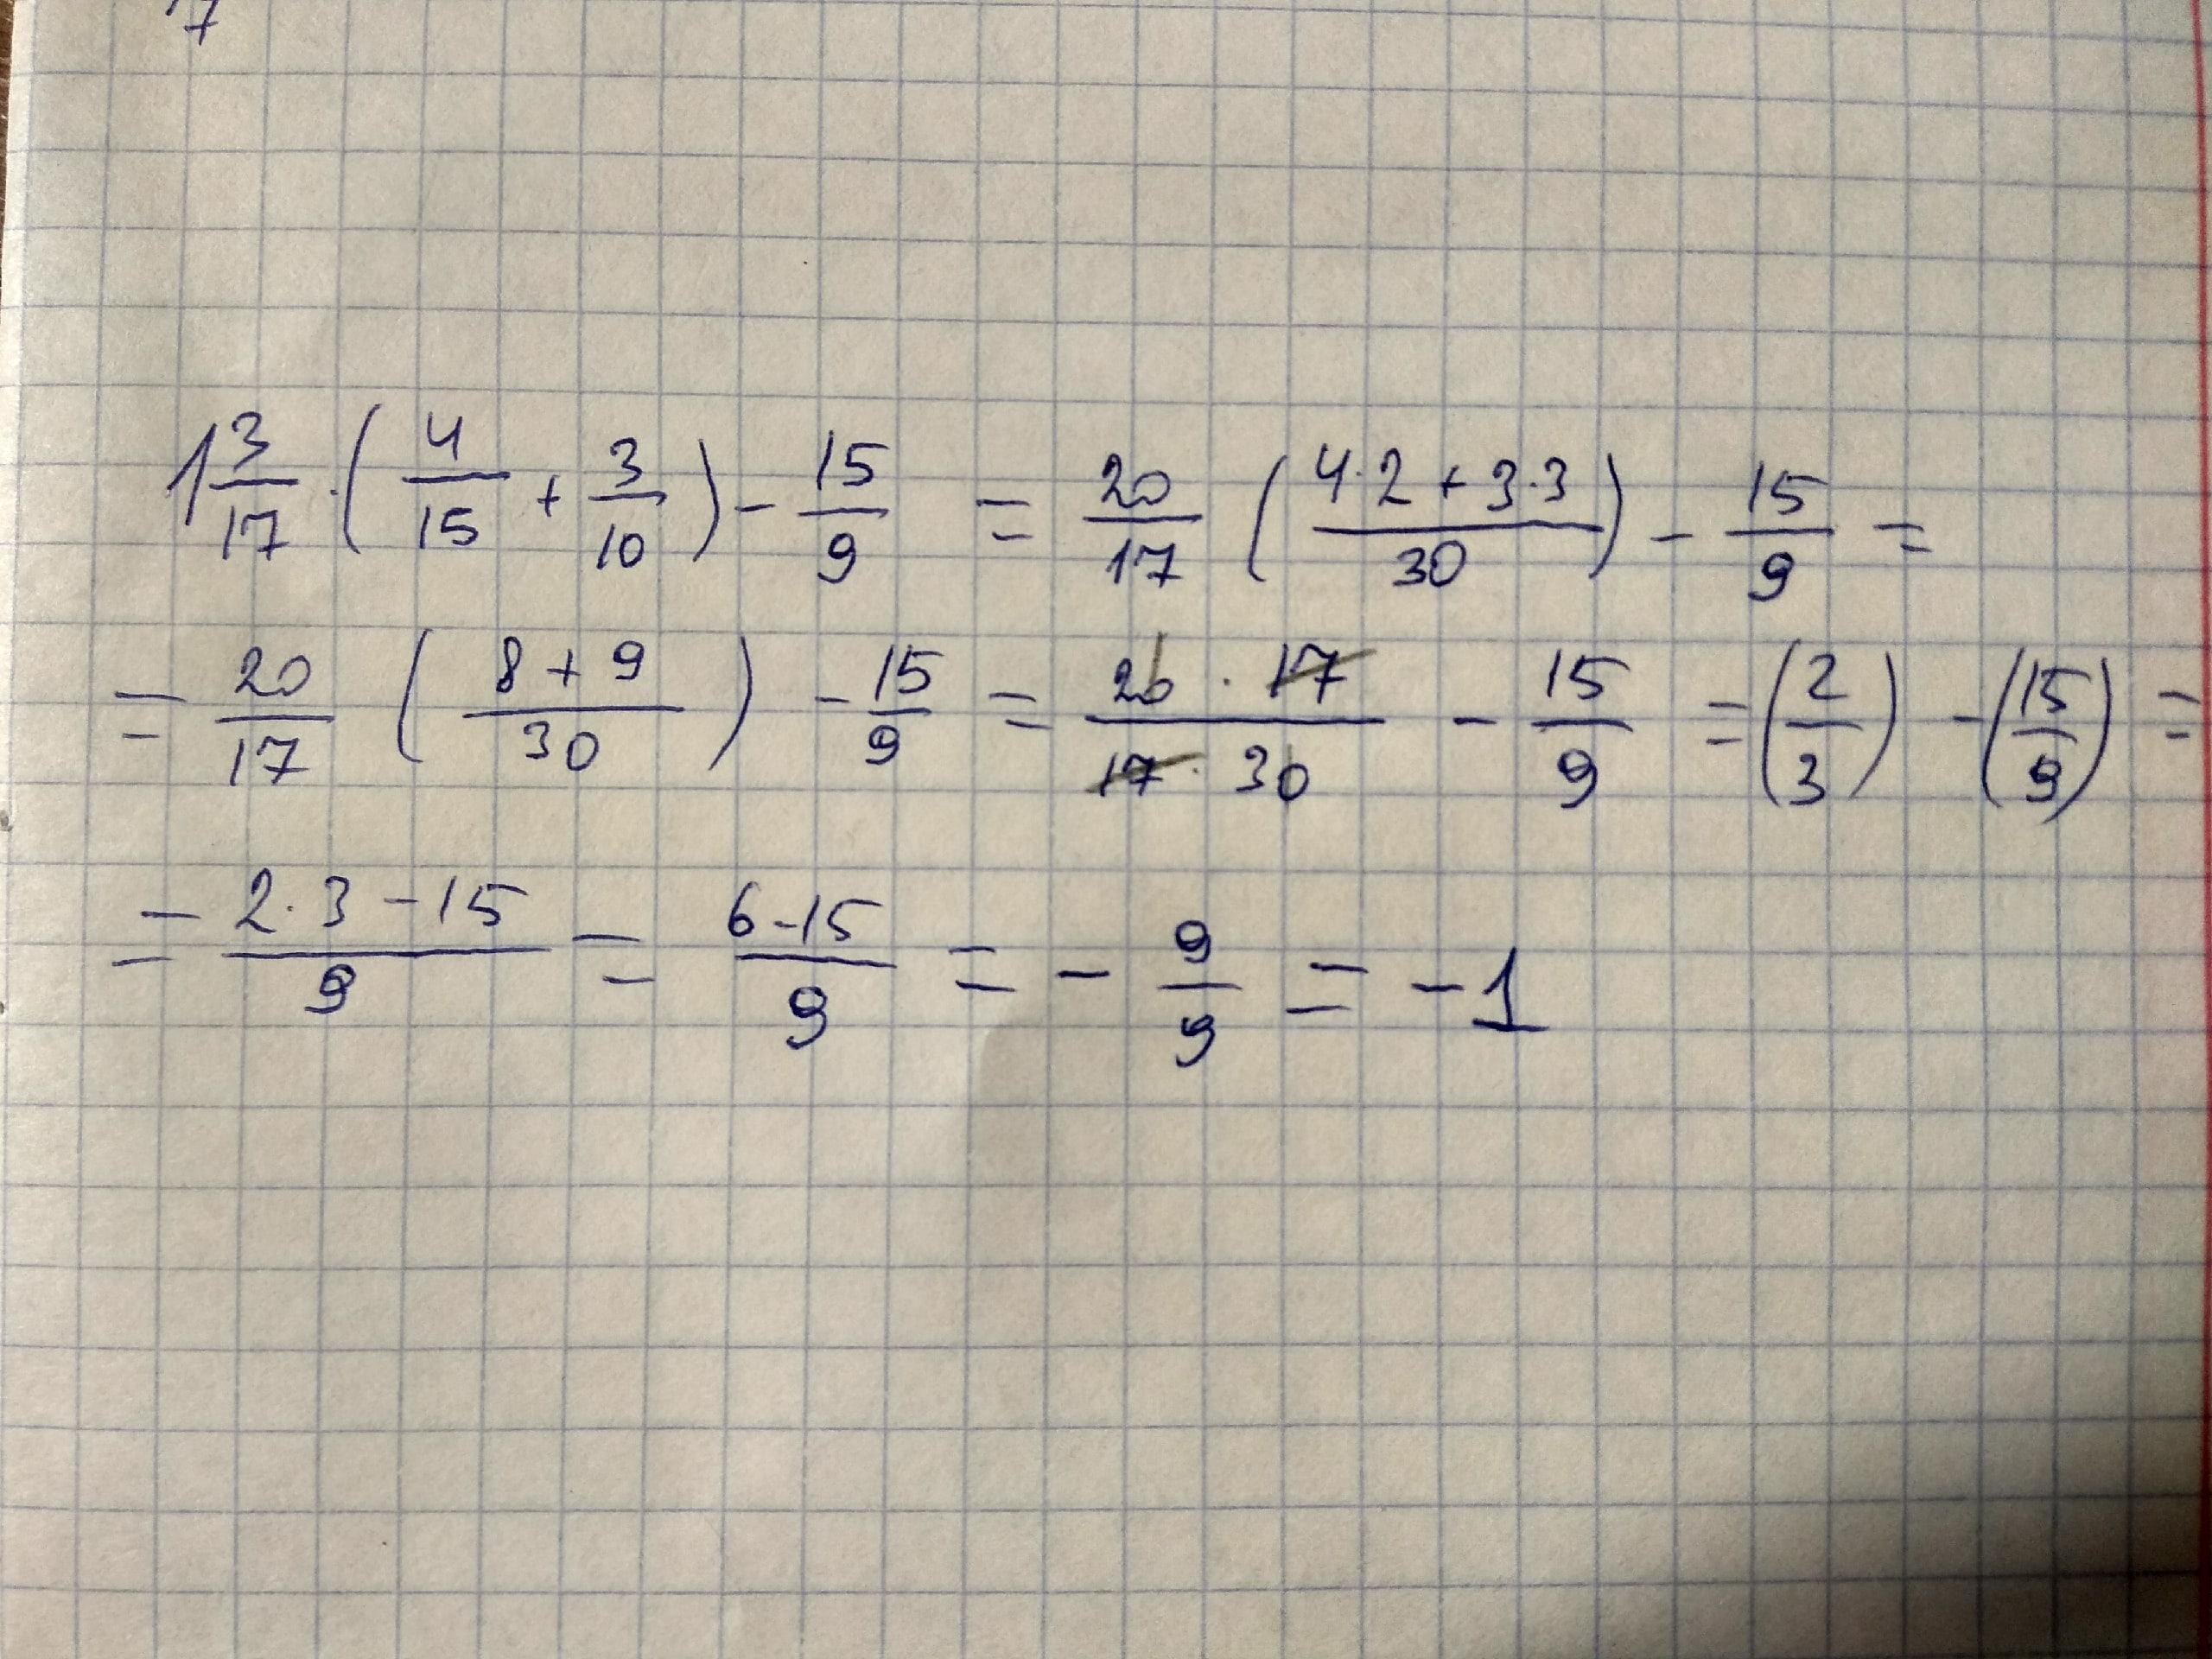 7
1 3/17 · (4/15 + 3/10) - 15/9 = 20/17 (4·2 + 3·3 / 30) - 15/9 =
= 20/17 (8 + 9 / 30) - 15/9 = 20 · 17 / 17 · 30 - 15/9 = (2/3) - (15/9) =
= 2·3 - 15 / 9 = 6 - 15 / 9 = - 9/9 = -1